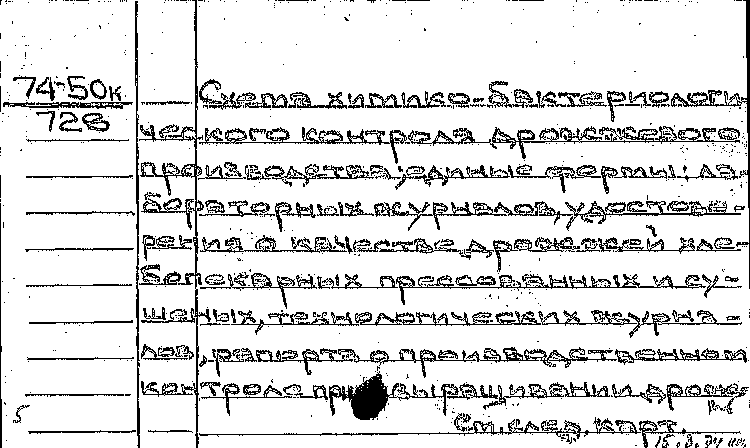 74-50к
728
Схема химико-бактериологи-
ческого контроля дрожжевого
производства; единые формы: ла-
бораторных журналов, удостове-
рения о качестве дрожжей хле-
бопекарных прессованных и су-
шеных, технологических журна-
лов, рапорта о производственном
контроле при выращивании дрож-
См. след. карт.
5